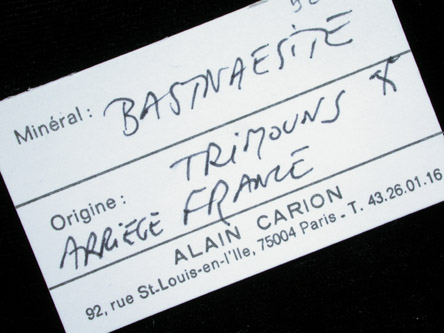 Minéral: BASTNAESITE
TRIMOUNS X
Origine:
ARRIÈGE FRANCE
ALAIN CARION
92, rue St.Louis-en-l'Ile, 75004 Paris - T. 43.26.01.16